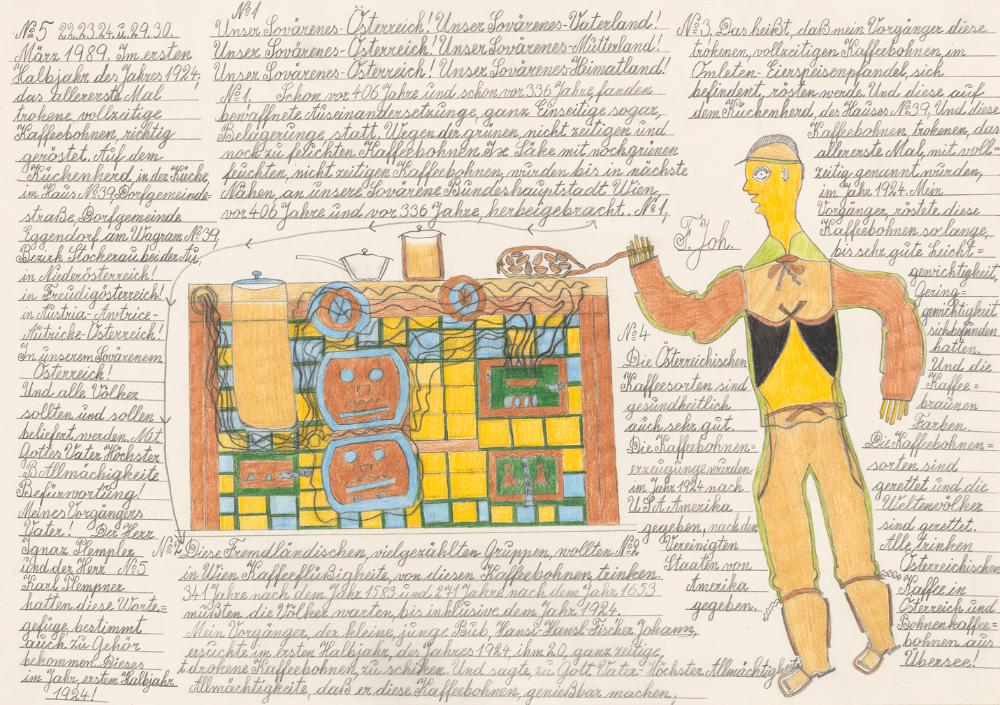 №1
Unser Sovärenes-Österreich! Unser Sovärenes-Vaterland!
Unser Sovärenes-Österreich! Unser Sovärenes-Mütterland!
Unser Sovärenes-Österreich! Unser Sovärenes-Heimatland!
№1, Schon vor 406 Jahre und schon vor 336 Jahre fanden
bewaffnete Auseinandersetzunge, ganz Einseitige sogar,
Belagerunge statt. Wegen der grünen, nicht zeitigen und
noch zu feüchten Kaffeebohnen. Säke mit noch grünen
feüchten, nicht zeitigen Kaffeebohnen, würden bis in nächste
Nähen, an unsere Sovärene Bundeshauptstadt Wien,
vor 406 Jahre und vor 336 Jahre, herbeigebracht. №1,
№2 Diese Fremdländischen, vielgezählten Gruppen, wollten №2
in Wien Kaffeeflüßigkeite, von diesen Kaffeebohnen trinken.
341 Jahre nach dem Jahr 1583 und 271 Jahre nach dem Jahr 1653
müßten die Völker warten, bis inklusive dem Jahr 1924.
Mein Vorgänger, der kleine, junge Bub, Hansl-Hansl-Fischer Johann,
ersüchte im ersten Halbjahr, des Jahres 1924, ihm 20, ganz zeitige,
trokene Kaffeebohnen, zu schiken. Und sagte, zu Gott Vater-Höchster Allmächtigkeite
Allmächtigkeite, daß er diese Kaffeebohnen, genießbar machen,
№3. Das heißt, daß mein Vorgänger diese
trokenen, vollzeitigen Kaffeebohnen, im
Omleten-Eierspeisenpfandel, sich
befindent, rösten werde. Und diese auf
dem Kückenherd, des Hauses №39, Und diese
Kaffeebohnen, trökenen, das
allererste Mal, mit voll=
zeitig genannt würden,
im Jahr 1924. Mein
Vorgänger, röstete diese
Kaffeebohnen so lange,
bis sehr gute Leicht=
gewichtigkeit,
Gering=
gewichtigkeit
sich befinden
hatten.
Und die
Kaffee=
braunen
Farben.
F. Joh.
№4
Die Österreichischen
Kaffeesorten sind
gesundheitlich
auch sehr gut.
Die Kaffeebohnen=
erzeugunge würden
im Jahr 1924 nach
U.S.A. Amerika
gegeben, nach den
Vereinigten
Staaten von
Amerika
gegeben.
Die Kaffeebohnen=
sorten sind
gerettet und die
Weltenvölker
sind gerettet.
Alle trinken
Österreichischen
Kaffee in
Österreich und
Bohnenkaffee=
bohnen aus
Übersee!
№5 22.23.24.u.29.30.
März 1989. Im ersten
Halbjahr des Jahres 1924,
das allererste Mal
trokene vollzeitige
Kaffeebohnen, richtig
geröstet. Auf dem
Kückenherd, in der Küche,
im Haus №39 Dorfgemeinde=
straße Dorfgemeinde
Eggendorf am Wagram №39,
Bezirk Stockerau bei der Au,
in Niederösterreich!
in Freudigösterreich!
in Austria-
Autricke-Österreich!
In unserem Sovärenem
Österreich!
Und alle Völker
sollten und sollen
beliefert werden. Mit
Gottes Vater Höchster
Allmächigkeite
Befürwortüng!
Meines Vorgängers
Vater! Der Herr
Ignaz Plempler
und der Herr №5
Karl Plempner
hatten diese Worte=
gefüge bestimmt
auch zu Gehör
bekommen. Dieses
im Jahr, erstem Halbjahr
1924!